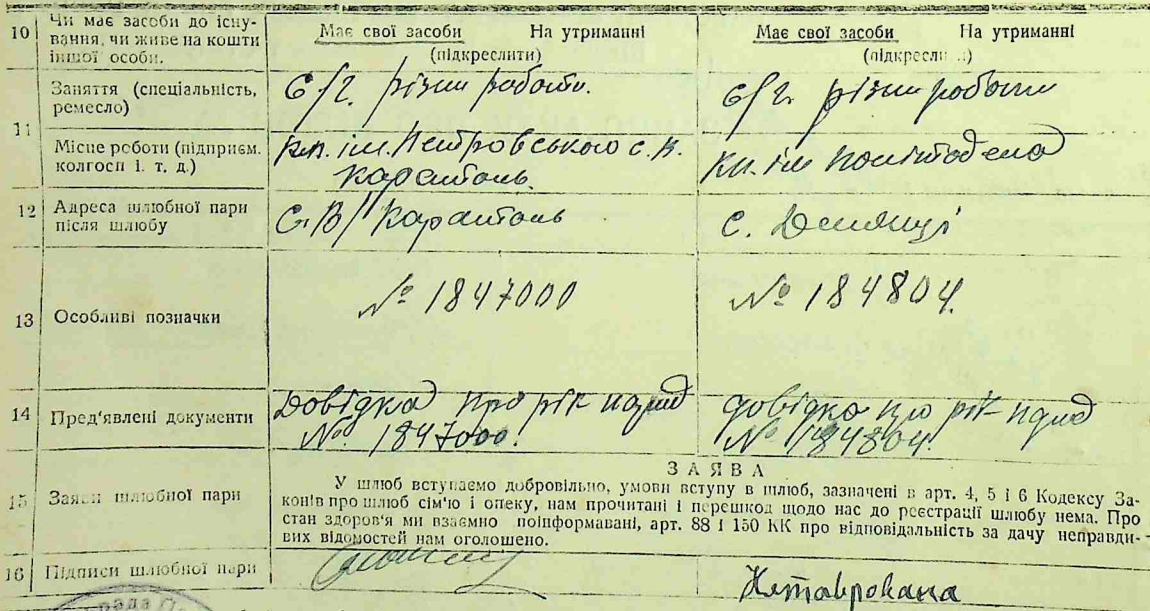 10 Чи має засоби до існу-
вання, чи живе на кошти
іншої особи.
Має свої засоби На утриманні
(підкреслити)
Має свої засоби На утриманні
(підкреслити)
11 Заняття (спеціальність,
ремесло)
С/г. різни роботи.
с/г. різни роботи
Місце роботи (підприєм.
колгосп і. т. д.)
кп. ім. Петровського с. в.
Карантонь.
кп. ім
12 Адреса шлюбної пари
після шлюбу
С. В/
с.
13 Особливі позначки
№ 1847000
№ 184804.
14 Пред'явлені документи
Довідка про рік народ
№ 1847000.
довідка про рік народ
№ 184804.
15 Заяви шлюбної пари
ЗАЯВА
У шлюб вступаємо добровільно, умови вступу в шлюб, зазначені в арт. 4, 5 і 6 Кодексу За-
конів про шлюб сім'ю і опеку, нам прочитані і перешкод щодо нас до реєстрації шлюбу нема. Про
стан здоров'я ми взаємно поінформавані, арт. 88 і 150 КК про відповідальність за дачу неправди-
вих відомостей нам оголошено.
16 Підписи шлюбної пари
рада